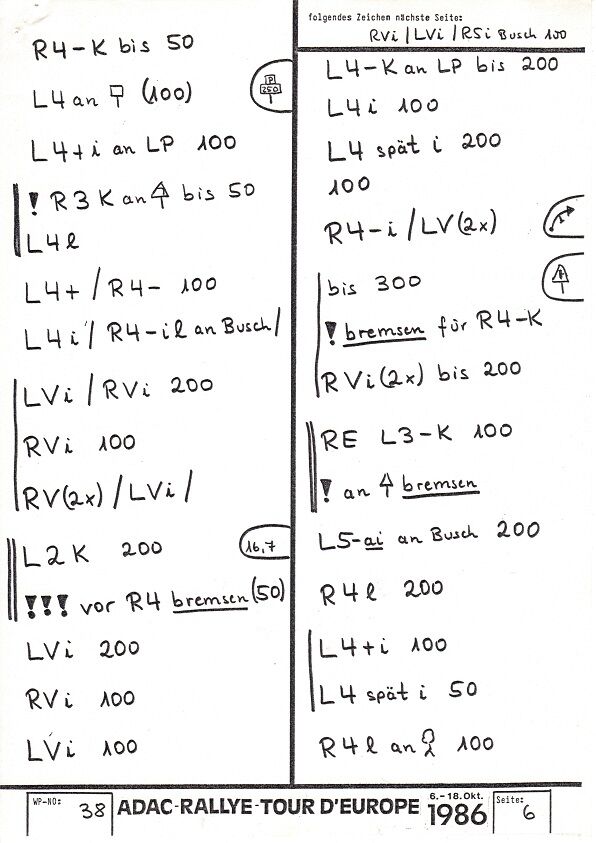 R4-K bis 50
L4 an (100)
P
250
L4+i an LP 100
! R3 K an bis 50
L4l
L4+ / R4- 100
L4i / R4-il an Busch /
LVi / RVi 200
RVi 100
RV(2x) / LVi /
L2 K 200
16,7
!!! vor R4 bremsen (50)
LVi 200
RVi 100
LVi 100
folgendes Zeichen nächste Seite:
RVi / LVi / RSi Busch 100
L4-K an LP bis 200
L4i 100
L4 spät i 200
100
R4-i / LV(2x)
bis 300
! bremsen für R4-K
RVi(2x) bis 200
RE L3-K 100
! an bremsen
L5-ai an Busch 200
R4l 200
L4+i 100
L4 spät i 50
R4l an 100
WP-NO: 38
ADAC-RALLYE-TOUR D'EUROPE
6.-18.Okt.
1986
Seite: 6